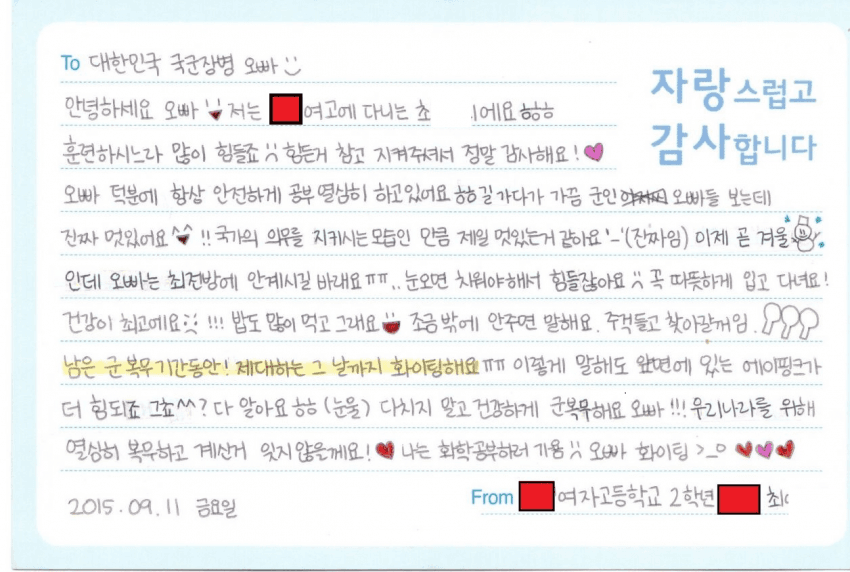 To 대한민국 국군장병 오빠
자랑스럽고
감사합니다
안녕하세요 오빠 저는 여고에 다니는 최 1에요 ㅎㅎㅎ
훈련하시느라 많이 힘들죠 힘든거 참고 지켜주셔서 정말 감사해요!
오빠 덕분에 항상 안전하게 공부 열심히 하고있어요 ㅎㅎ 길 가다가 가끔 군인 오빠들 보는데
진짜 멋있어요 ^^ !! 국가의 의무를 지키시는 모습인 만큼 제일 멋있는거 같아요 '_' (진짜임) 이제 곧 겨울
인데 오빠는 최전방에 안계시길 바래요 ㅠㅠ.. 눈오면 치워야해서 힘들잖아요 꼭 따뜻하게 입고 다녀요!
건강이 최고에요 !!! 밥도 많이 먹고 그래요 조금 밖에 안주면 말해요. 주걱들고 찾아갈꺼임.
남은 군 복무기간동안! 제대하는 그 날까지 화이팅해요 ㅠㅠ 이렇게 말해도 앞면에 있는 에이핑크가
더 힘되죠 그쵸^^? 다 알아요 ㅎㅎ (눈물) 다치지 말고 건강하게 군복무해요 오빠 !!! 우리나라를 위해
열심히 복무하고 계신거 잊지않을께요! 나는 화학공부하러 가용 오빠 화이팅 >_0
2015.09.11 금요일
From 여자고등학교 2학년 최